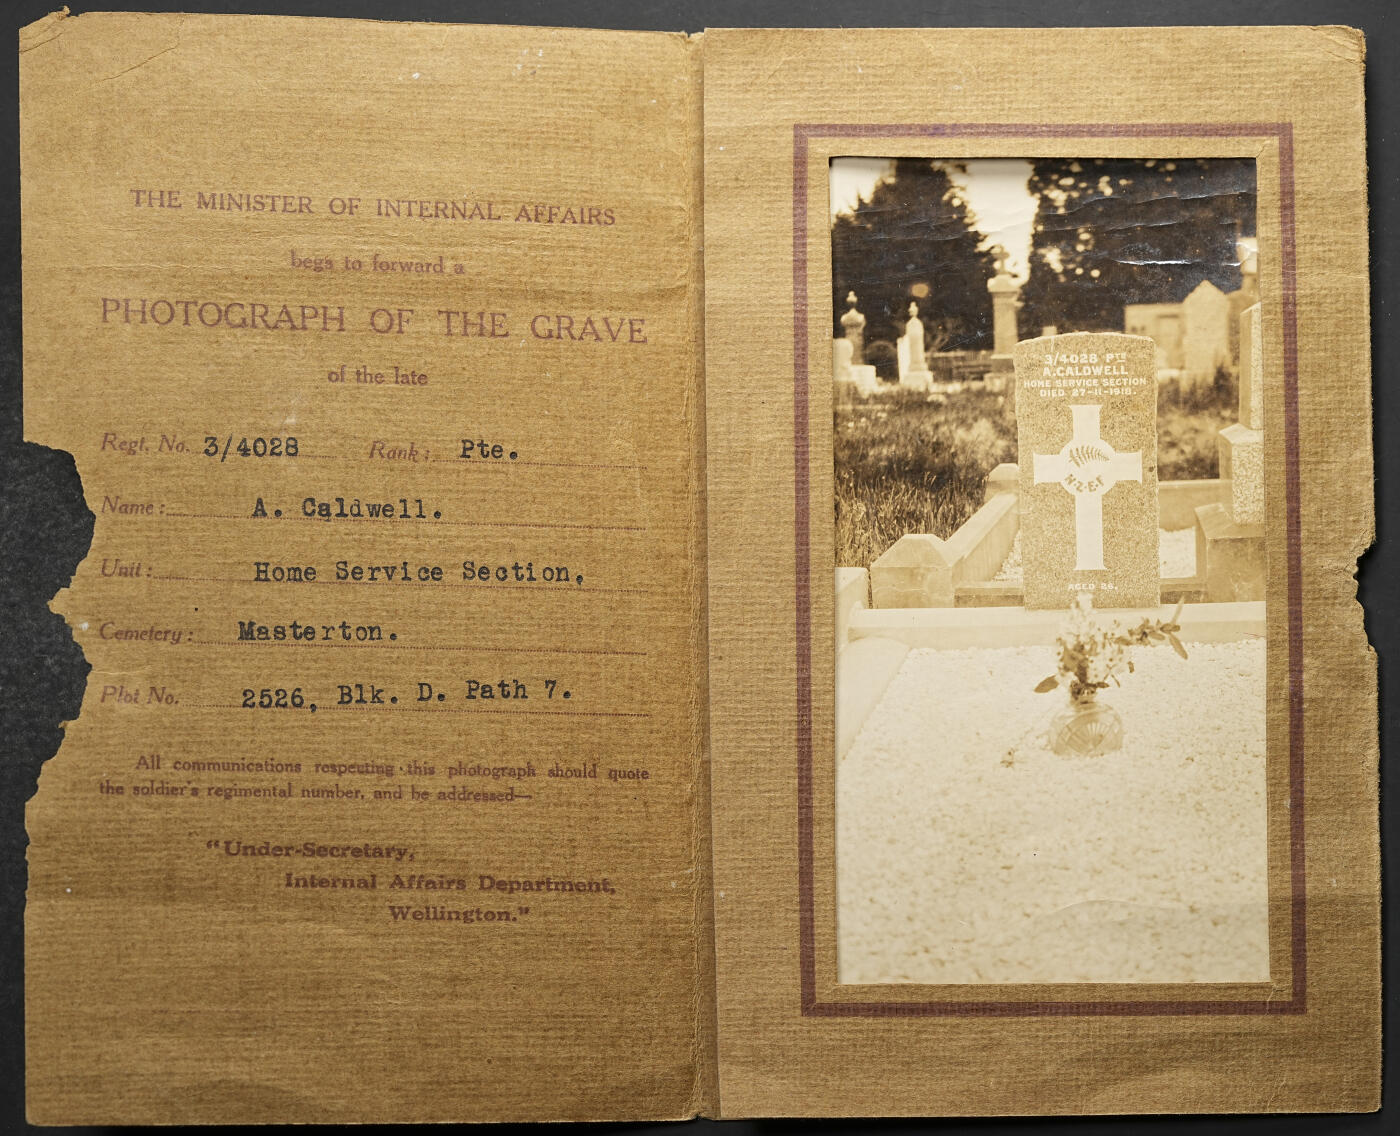 THE MINISTER OF INTERNAL AFFAIRS
begs to forward a
PHOTOGRAPH OF THE GRAVE
of the late
Regt. No. 3/4028 Rank: Pte.
Name: A. Caldwell.
Unit: Home Service Section,
Cemetery: Masterton.
Plot No. 2526, Blk. D. Path 7.
All communications respecting this photograph should quote
the soldier's regimental number, and be addressed—
"Under-Secretary,
Internal Affairs Department,
Wellington."
3/4028 PTE
A. CALDWELL
HOME SERVICE SECTION
DIED 27-11-1918.
N.Z.E.F
AGED 26.